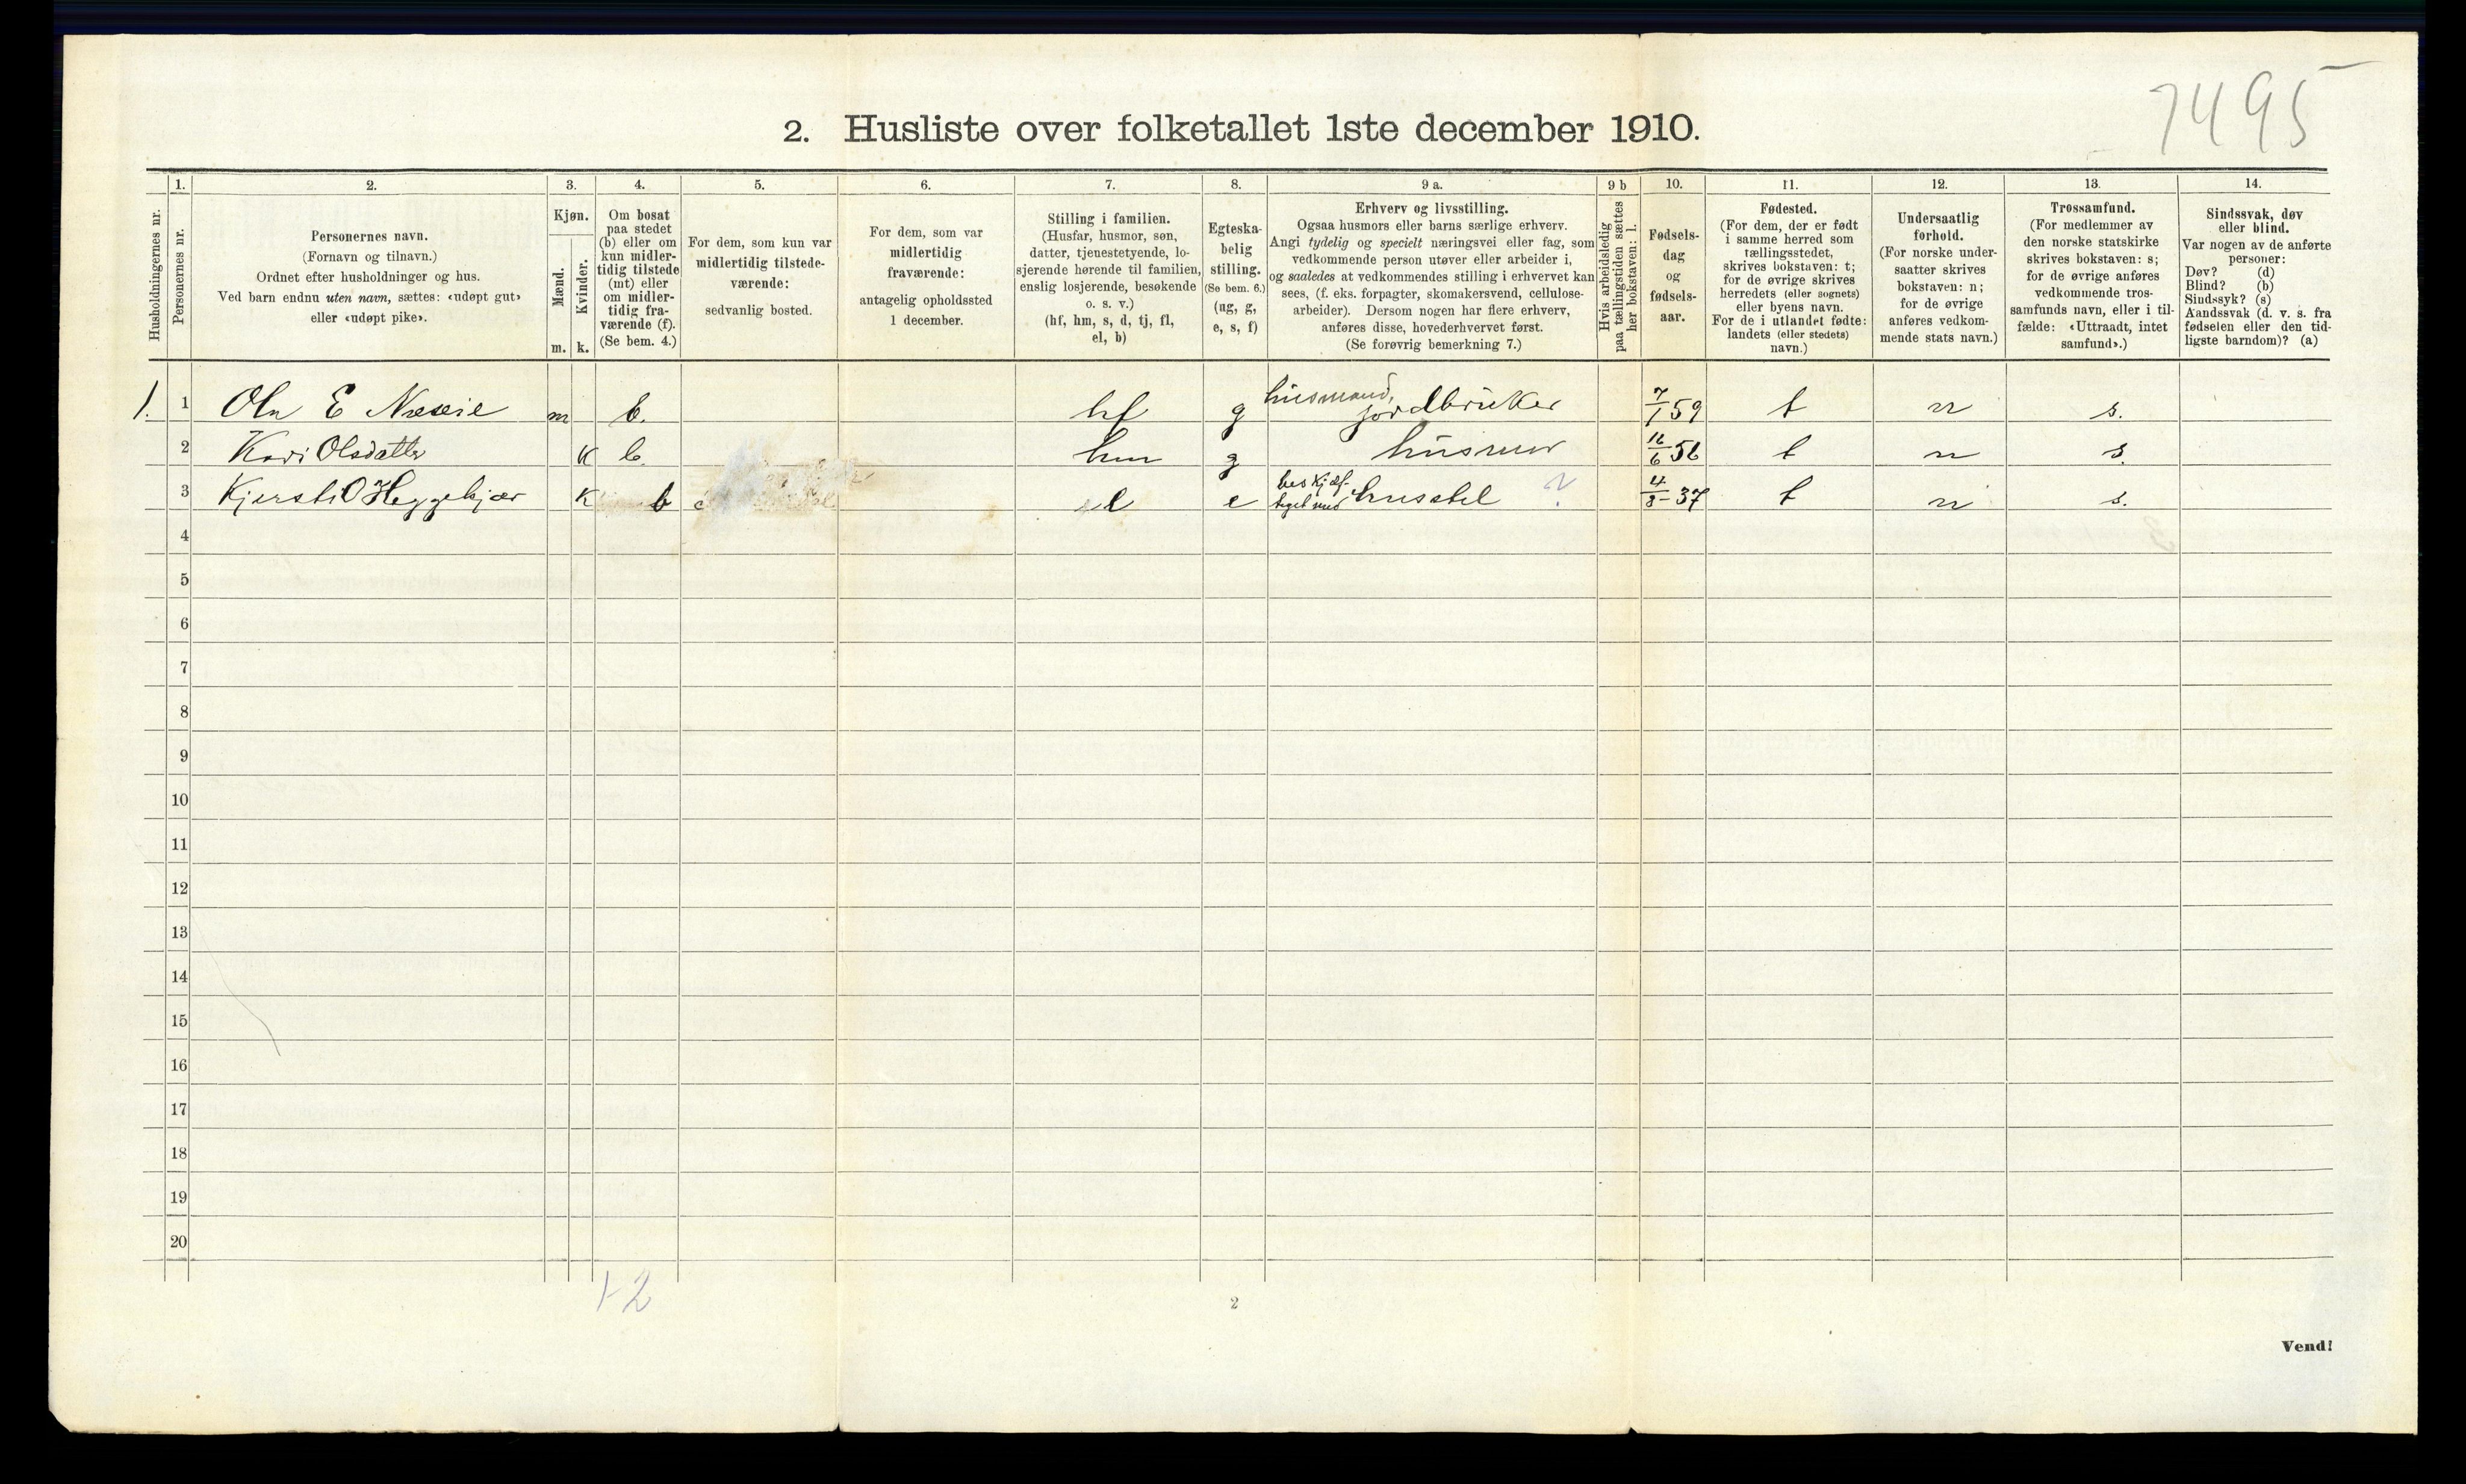 7495
2. Husliste over folketallet 1ste december 1910.
Husholdningernes nr.
1. Personernes nr.
2. Personernes navn.
(Fornavn og tilnavn.)
Ordnet efter husholdninger og hus.
Ved barn endnu uten navn, sættes: «udøpt gut»
eller «udøpt pike».
3. Kjøn.
Mænd. m.
Kvinder. k.
4. Om bosat
paa stedet
(b) eller om
kun midler-
tidig tilstede
(mt) eller
om midler-
tidig fra-
værende (f).
(Se bem. 4.)
5. For dem, som kun var
midlertidig tilstede-
værende:
sedvanlig bosted.
6. For dem, som var
midlertidig
fraværende:
antagelig opholdssted
1 december.
7. Stilling i familien.
(Husfar, husmor, søn,
datter, tjenestetyende, lo-
sjerende hørende til familien,
enslig losjerende, besøkende
o. s. v.)
(hf, hm, s, d, tj, fl,
el, b)
8. Egteska-
belig
stilling.
(Se bem. 6.)
(ug, g,
e, s, f)
9 a. Erhverv og livsstilling.
Ogsaa husmors eller barns særlige erhverv.
Angi tydelig og specielt næringsvei eller fag, som
vedkommende person utøver eller arbeider i,
og saaledes at vedkommendes stilling i erhvervet kan
sees, (f. eks. forpagter, skomakersvend, cellulose-
arbeider). Dersom nogen har flere erhverv,
anføres disse, hovederhvervet først.
(Se forøvrig bemerkning 7.)
9 b Hvis arbeidsledig
paa tællingstiden sættes
her bokstaven: l.
10. Fødsels-
dag
og
fødsels-
aar.
11. Fødested.
(For dem, der er født
i samme herred som
tællingsstedet,
skrives bokstaven: t;
for de øvrige skrives
herredets (eller sognets)
eller byens navn.
For de i utlandet fødte:
landets (eller stedets)
navn.)
12. Undersaatlig
forhold.
(For norske under-
saatter skrives
bokstaven: n;
for de øvrige
anføres vedkom-
mende stats navn.)
13. Trossamfund.
(For medlemmer av
den norske statskirke
skrives bokstaven: s;
for de øvrige anføres
vedkommende tros-
samfunds navn, eller i til-
fælde: «Uttraadt, intet
samfund».)
14. Sindssvak, døv
eller blind.
Var nogen av de anførte
personer:
Døv? (d)
Blind? (b)
Sindssyk? (s)
Aandssvak (d. v. s. fra
fødselen eller den tid-
ligste barndom)? (a)
1. 1 Ola E m b. hf g husmand, jordbruker 7/1 59 t n s.
2 Kari Olsdatter K b. hm g husmor 16/6 56 t n s.
3 Kjersti O Heggekjær K b el e beskjæf-
tiget med husstel ? 4/8-37 t n s.
4
5
6
7
8
9
10
11
12
13
14
15
16
17
18
19
20
1-2
2
Vend!